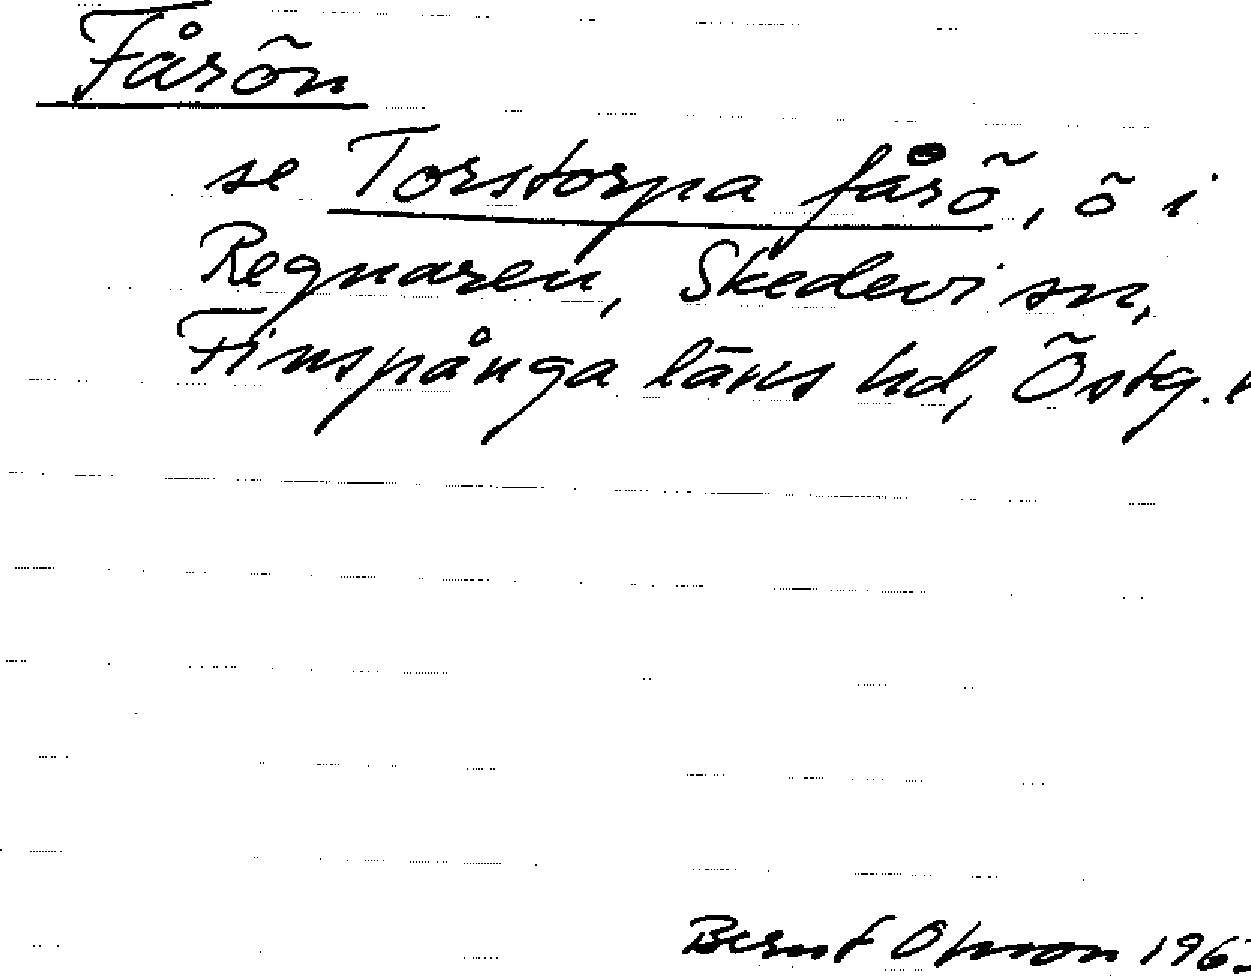 Fårön
se Torstorpa fårö, ö i
Regnaren, Skedevi sn,
Finspånga läns hd, Östg.
Bernt Olsson